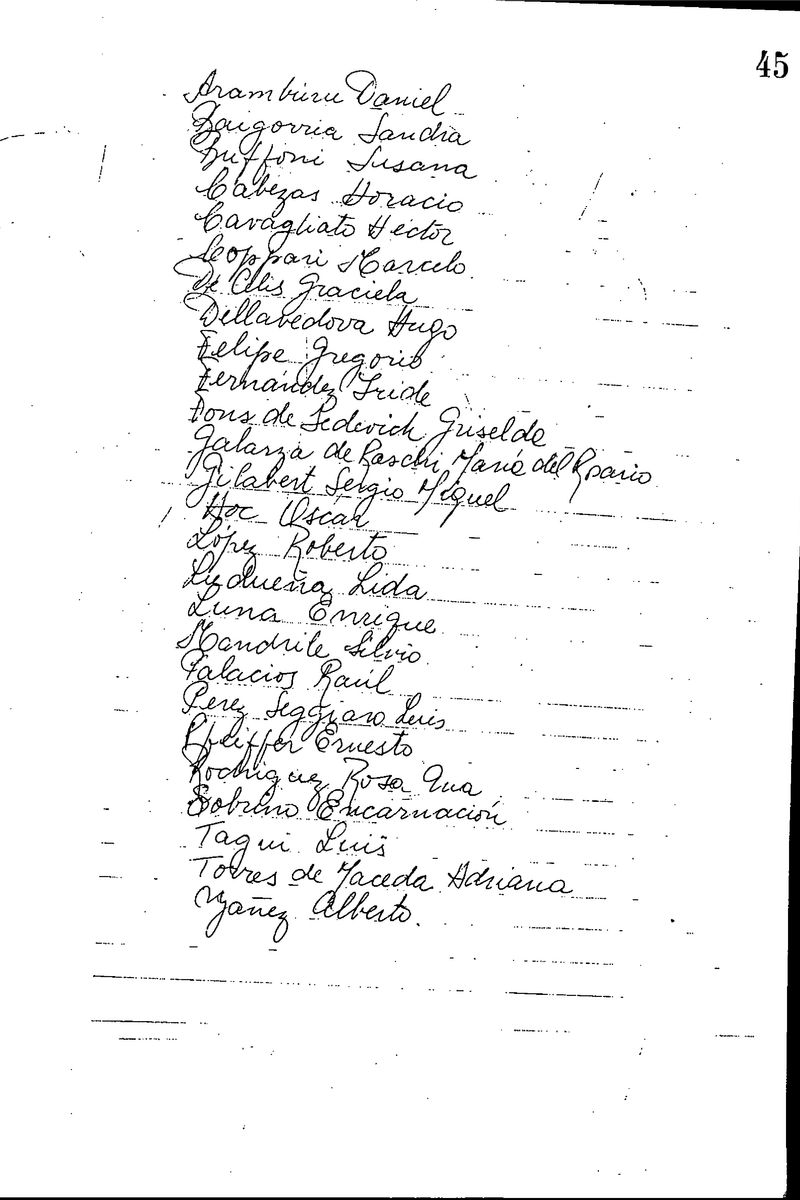 45
Aramburu Daniel
Baigorria Sandra
Buffoni Susana
Cabezas Horacio
Cavagliato Héctor
Coppari Marcelo
De Celis Graciela
Dellavedova Hugo
Felipe Gregorio
Fernández Iride
Pons de Sedevich Griselda
Galarza de Raschi, María del Rosario
Gilabert Sergio Miguel
Hoc Oscar
López Roberto
Ludueña Lida
Luna Enrique
Mandrile Silvio
Palacios Raúl
Perez Seggiaro Luis
Pfeiffer Ernesto
Rodriguez Rosa Ana
Sobrino Encarnación
Taqui Luis
Torres de Maceda Adriana
Yañez Alberto.